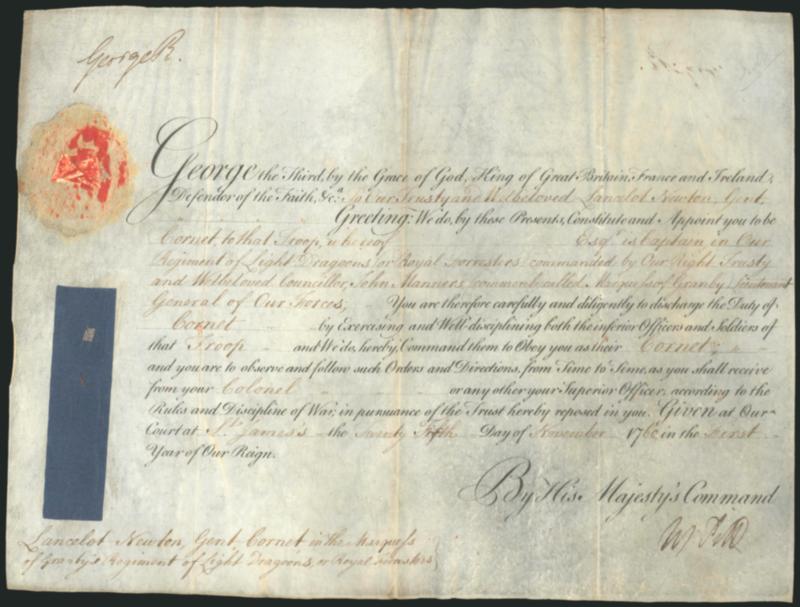 George R.
George the Third, by the Grace of God, King of Great Britain, France and Ireland,
Defendor of the Faith, &c.ᵃ To Our Trusty and Welbeloved Lancelot Newton, Gent.
Greeting: We do, by these Presents, Constitute and Appoint you to be
Cornet, to that Troop, whereof Esqʳ. is Captain in Our
Regiment of Light Dragoons, or Royal Forresters commanded by Our Right Trusty
and Welbeloved Councillor, John Manners, commonly called Marquess of Granby, Lieutenant
General of Our Forces; You are therefore carefully and diligently to discharge the Duty of
Cornet by Exercising and Well disciplining both the inferior Officers and Soldiers of
that Troop and We do, hereby, Command them to Obey you as their Cornet,
and you are to observe and follow such Orders and Directions, from Time to Time, as you shall receive
from your Colonel or any other your Superior Officer, according to the
Rules and Discipline of War, in pursuance of the Trust hereby reposed in you. Given at Our
Court at Sᵗ. James's the Twenty Fifth Day of November 1760 in the First
Year of Our Reign.
By His Majesty's Command
W Pitt
Lancelot Newton, Gent. Cornet in the Marquess
of Granby's Regiment of Light Dragoons, or Royal Forresters